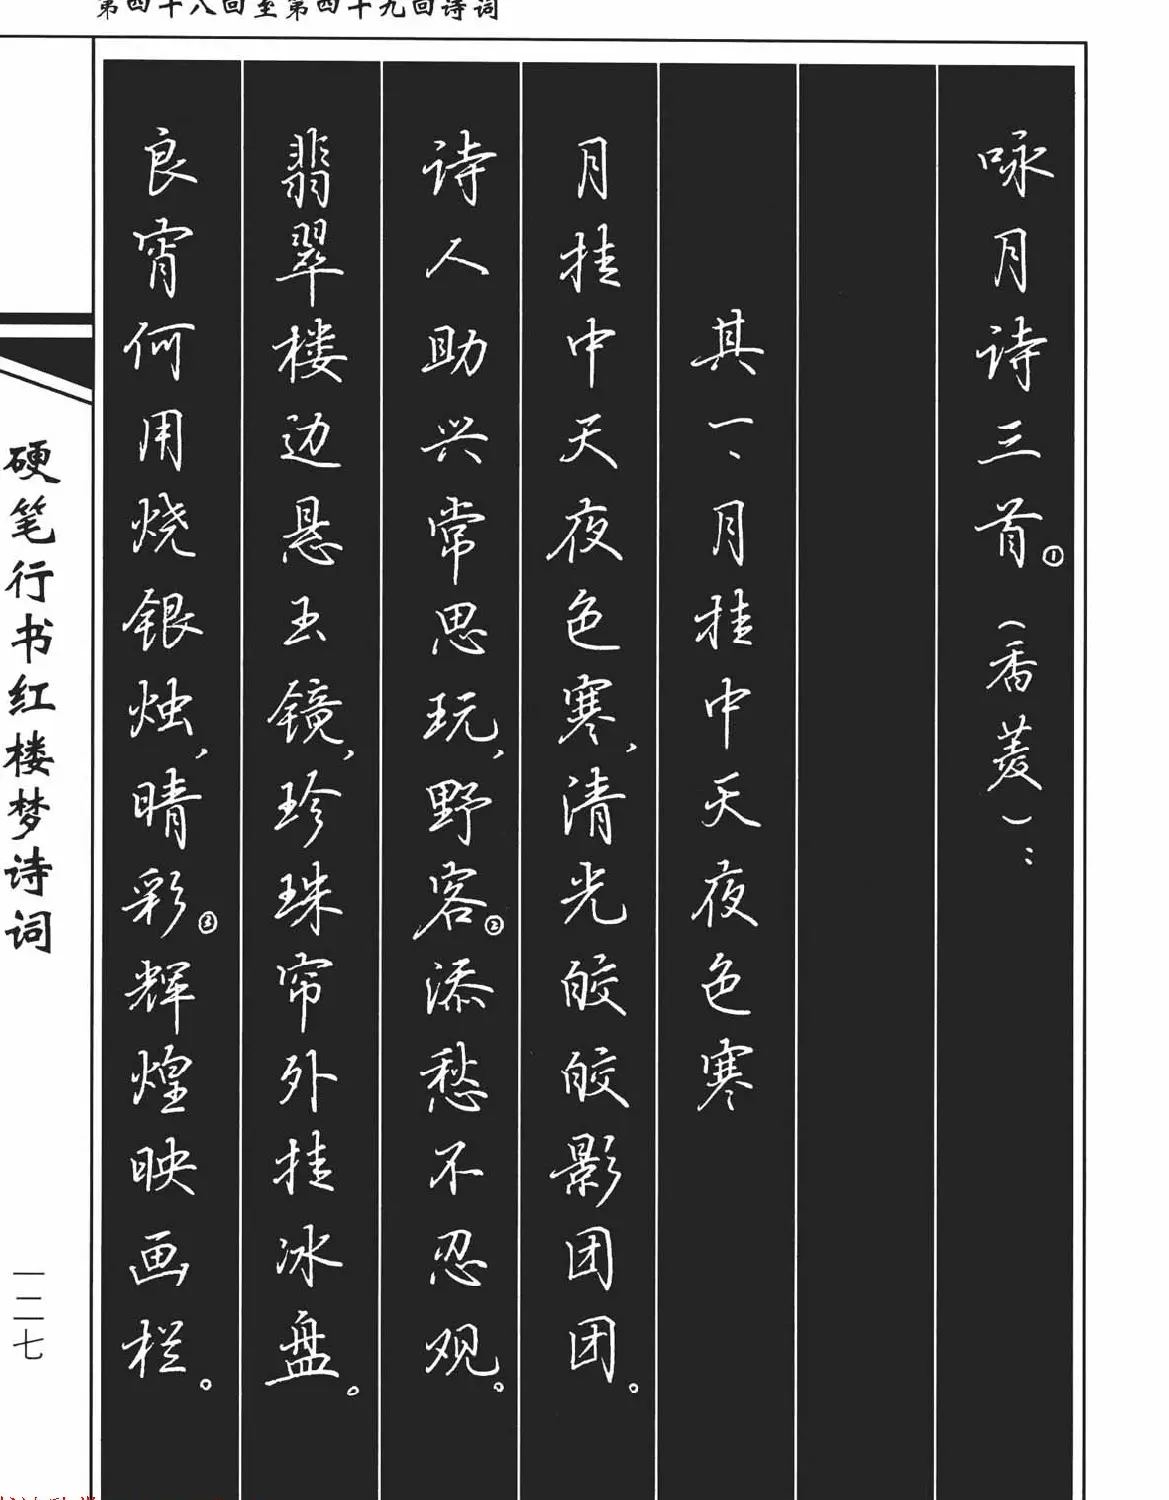 第四十八回至第四十九回诗词
咏月诗三首①（香菱）：
其一、月挂中天夜色寒
月挂中天夜色寒，清光皎皎影团团。
诗人助兴常思玩，野客②添愁不忍观。
翡翠楼边悬玉镜，珍珠帘外挂冰盘。
良宵何用烧银烛，晴彩③辉煌映画栏。
硬笔行书红楼梦诗词
一二七